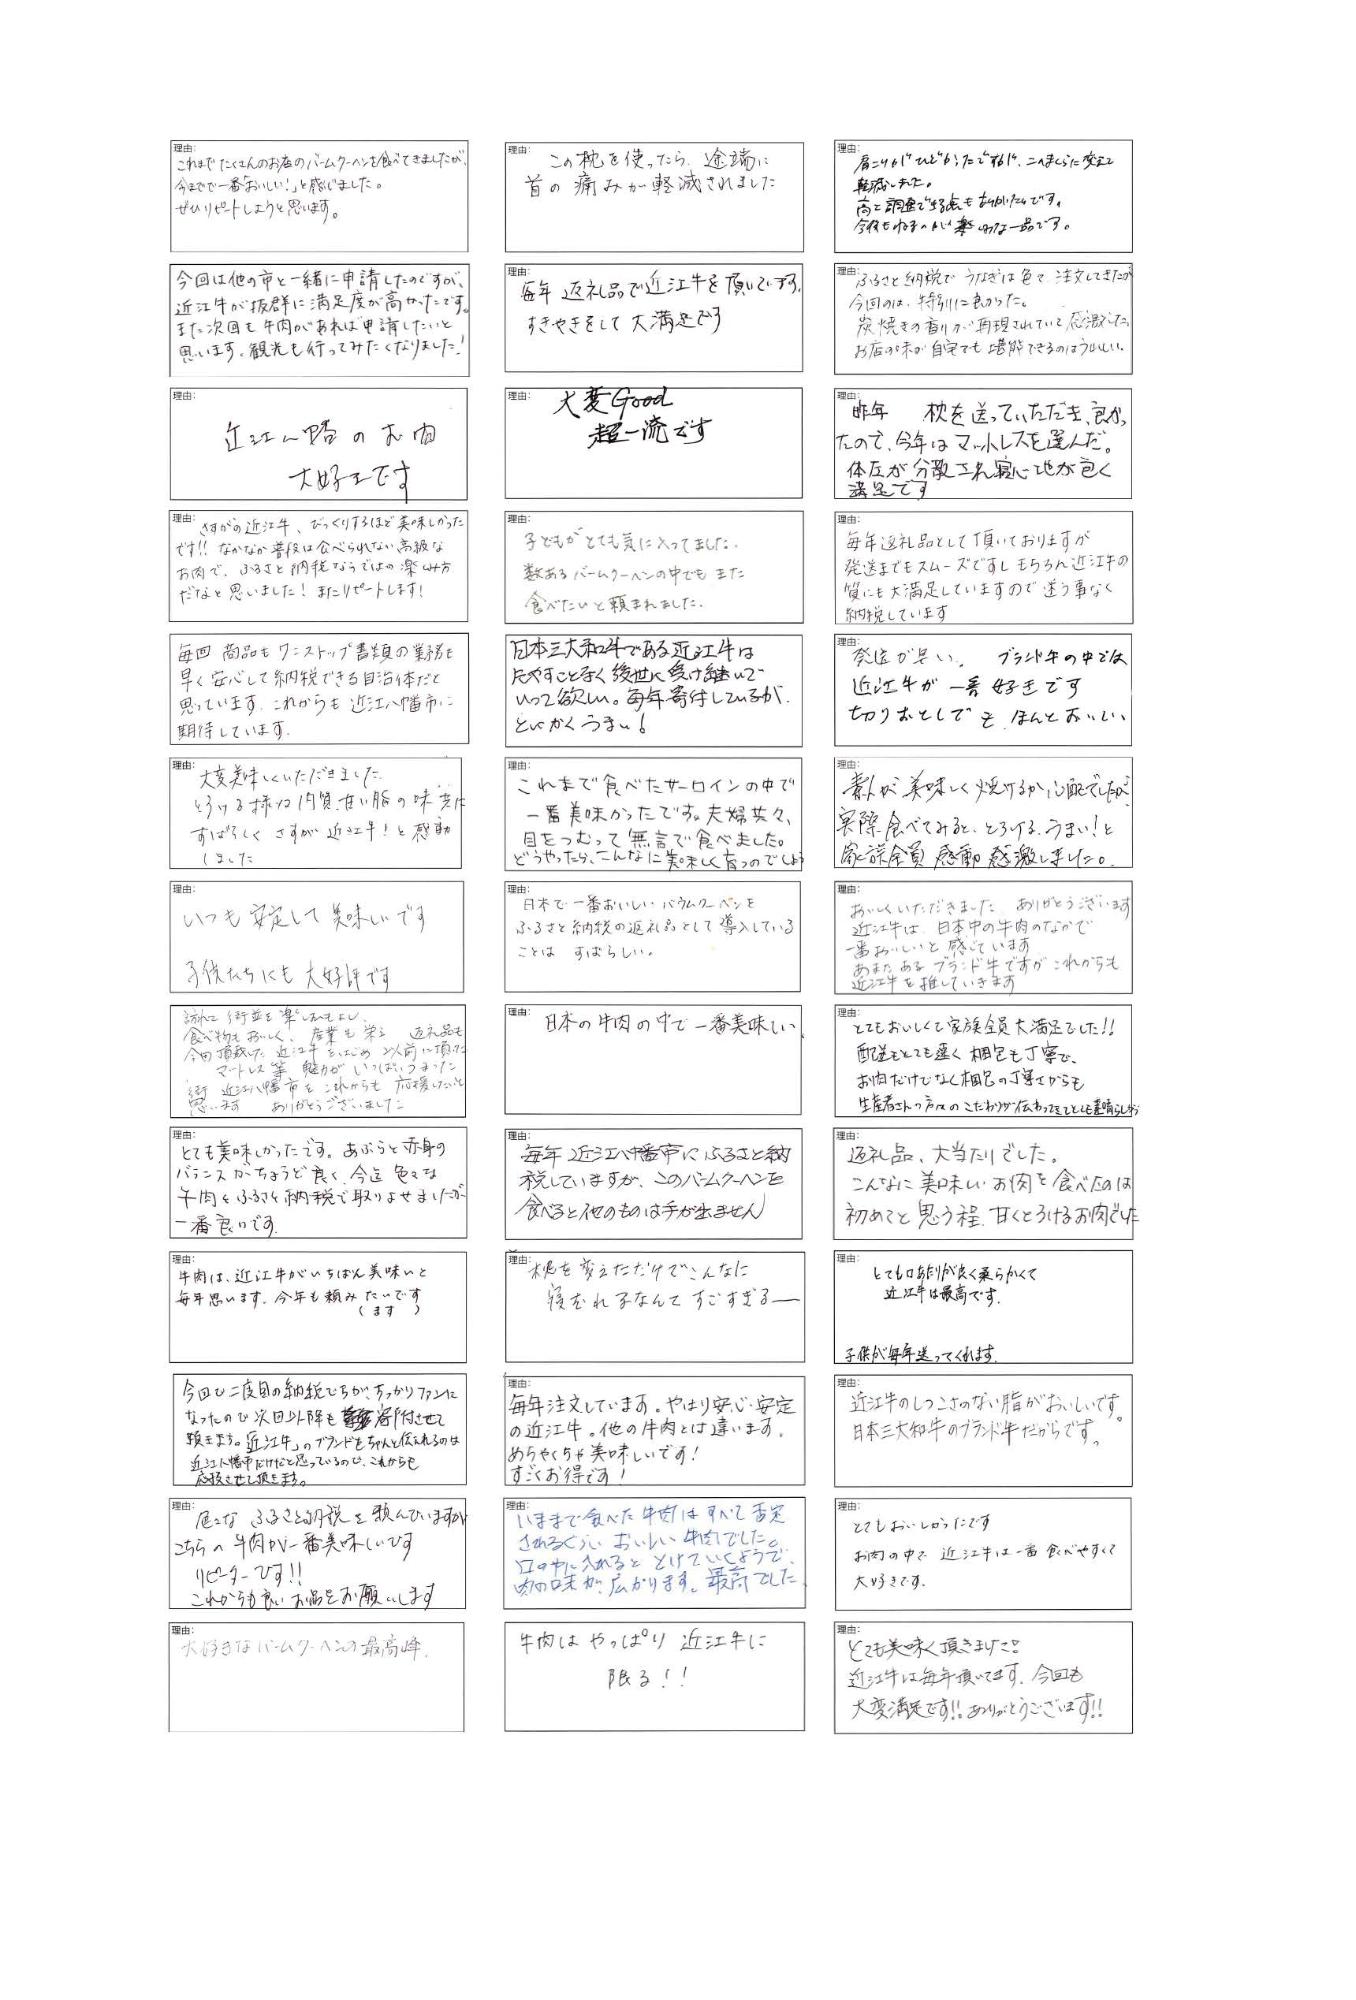 理由:
これまでたくさんのお店のバームクーヘンを食べてきましたが、
今までで一番「おいしい!」と感じました。
ぜひリピートしようと思います。
理由:
この枕を使ったら、途端に
首の痛みが軽減されました
理由:
肩こりがひどかったですが、このまくらに変えて
軽減しました。
高さ調整できる点もありがたいです。
今回は他の市と一緒に申請したのですが、
近江牛が抜群に満足度が高かったです。
また次回も牛肉があれば申請したいと
思います。観光も行ってみたくなりました!
理由:
毎年 返礼品で近江牛を頂いています。
すきやきをして大満足です
理由:
ふるさと納税で うなぎは色々 注文してきたが
今回のは、特別に良かった。
炭焼きの香りが再現されていて感激でした。
お店の味が自宅でも堪能できるのはうれしい。
理由:
近江八幡のお肉
大好きです
理由:
大変Good
超一流です
理由:
昨年 枕を送っていただき、良かっ
たので、今年はマットレスを選んだ。
体圧が分散され寝心地が良く
満足です
理由:
さすがの近江牛、びっくりするほど美味しかった
です!! なかなか普段は食べられない高級な
お肉で、ふるさと納税ならではの楽しみ方
だなと思いました! またリピートします!
理由:
子どもがとても気に入ってました。
数あるバームクーヘンの中でも また
食べたいと頼まれました。
理由:
毎年返礼品として頂いておりますが
発送までもスムーズですし もちろん近江牛の
質にも大満足していますので迷う事なく
納税しています
毎回 商品もワンストップ書類の業務も
早く安心して納税できる自治体だと
思っています。これからも 近江八幡市に
期待しています。
日本三大和牛である近江牛は
たやすことなく後世に受け継いで
いって欲しい。毎年寄付しているが、
とにかくうまい!
理由:
発送が早い。 ブランド牛の中では
近江牛が 一番好きです
切りおとしでも、ほんとおいしい
理由:
大変美味しくいただきました
とろける様な肉質、甘い脂の味 共に
すばらしく さすが 近江牛!と感動
しました
理由:
これまで食べたサーロインの中で
一番美味かったです。夫婦共々、
目をつむって無言で食べました。
どうやったら、こんなに美味しく育つのでしょう
理由:
素人が美味しく焼けるか心配でしたが、
実際食べてみると、とろける、うまい!と
家族全員 感動 感激しました。
理由:
いつも安定して美味しいです
子供たちにも大好評です
理由:
日本で一番おいしい バウムクーヘンを
ふるさと納税の返礼品として導入している
ことは すばらしい。
理由:
おいしくいただきました ありがとうございます
近江牛は、日本中の牛肉のなかで
一番おいしいと感じています
あまたある ブランド牛ですが これからも
近江牛を推していきます
訪れて 街並を楽しむもよし、
食べ物もおいしく、産業も栄え 返礼品も
今回頂戴した 近江牛をはじめ 以前に頂いた
マットレス等 魅力が いっぱいつまった
街 近江八幡市を これからも 応援したいと
思います ありがとうございました
理由:
日本の牛肉の中で一番美味しい。
理由:
とてもおいしくて家族全員大満足でした!!
配送もとても速く 梱包も丁寧で、
お肉だけでなく梱包の丁寧さからも
生産者さんの方々のこだわりが伝わってきてとても素晴らしかった
理由:
とても美味しかったです。あぶらと赤身の
バランスがちょうど良く、今迄 色々な
牛肉をふるさと納税で取りよせましたが
一番良いです。
理由:
毎年 近江八幡市にふるさと納
税していますが、このバームクーヘンを
食べると他のものは手が出ません
理由:
返礼品、大当たりでした。
こんなに 美味しいお肉を食べたのは
初めてと思う程、甘くとろけるお肉でした
理由:
牛肉は、近江牛がいちばん美味いと
毎年思います。今年も頼みたいです
(ます)
理由:
枕を変えただけでこんなに
寝むれるなんて すごすぎるー
理由:
とても口あたりが良く柔らかくて
近江牛は最高です。
子供が毎年送ってくれます。
今回で二度目の納税でちが、すっかりファンに
なったので次回以降も寄附させて
頂きます。「近江牛」のブランドをちゃんと伝えれるのは
近江八幡市だけだと思っているので、これからも
応援させて頂きます。
理由:
毎年注文しています。やはり安心・安定
の近江牛。他の牛肉とは違います。
めちゃくちゃ美味しいです!
すごくお得です!
理由:
近江牛のしつこさのない脂がおいしいです。
日本三大和牛のブランド牛だからです。
理由:
色々な ふるさと納税を頼んでいますが
こちらの牛肉が一番美味しいです
リピーターです!!
これからも良いお品をお願いします
理由:
いままで食べた牛肉はすべて否定
されるぐらい おいしい 牛肉でした。
口の中に入れると とけていくようで、
肉の味が、広がります。最高でした。
理由:
とてもおいしかったです
お肉の中で 近江牛は一番食べやすくて
大好きです。
理由:
大好きなバームクーヘンの最高峰。
牛肉は やっぱり 近江牛に
限る!!
理由:
とても美味く頂きました!!
近江牛は毎年頂いてます。今回も
大変満足です!! ありがとうございます!!